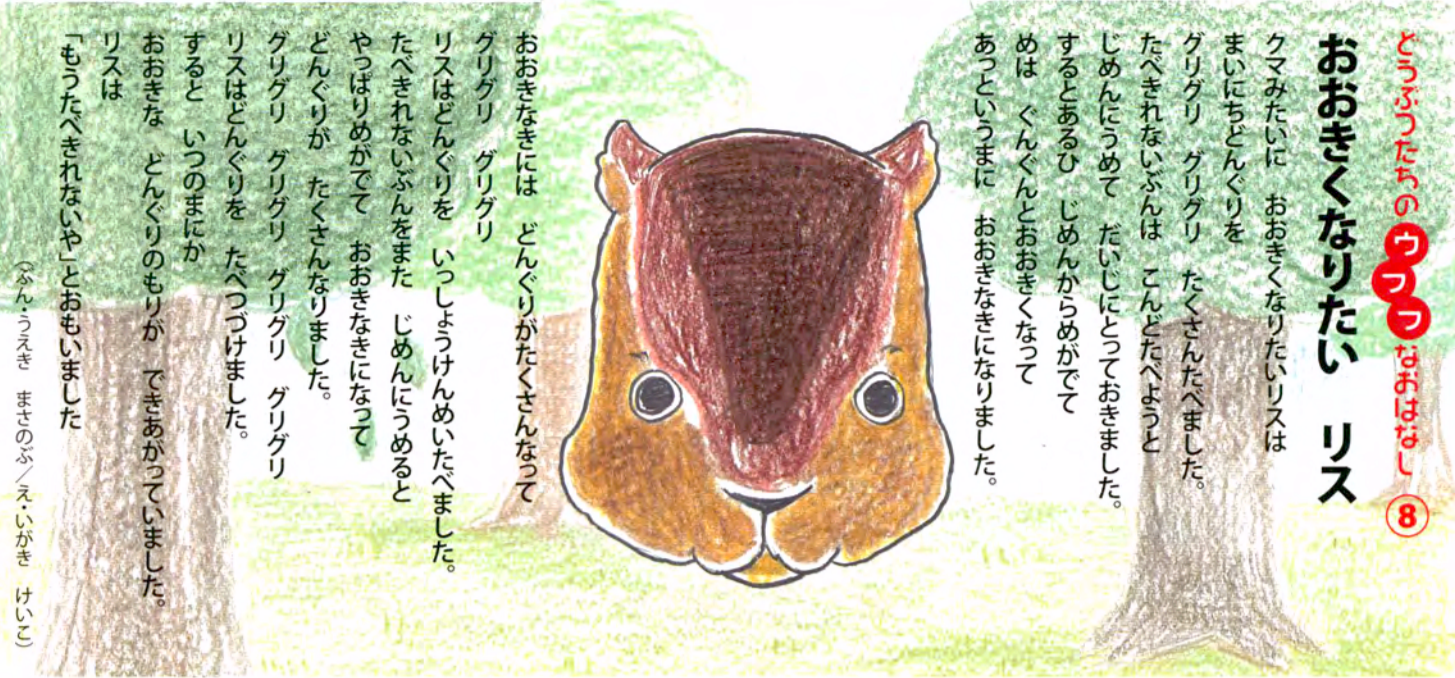 どうぶつたちのウフフなおはなし ⑧
おおきくなりたい　リス
クマみたいに　おおきくなりたいリスは
まいにちどんぐりを
グリグリ　グリグリ　たくさんたべました。
たべきれないぶんは　こんどたべようと
じめんにうめて　だいじにとっておきました。
するとあるひ　じめんからめがでて
めは　ぐんぐんとおおきくなって
あっというまに　おおきなきになりました。
おおきなきには　どんぐりがたくさんなって
グリグリ　グリグリ
リスはどんぐりを　いっしょうけんめいたべました。
たべきれないぶんをまた　じめんにうめると
やっぱりめがでて　おおきなきになって
どんぐりが　たくさんなりました。
グリグリ　グリグリ　グリグリ　グリグリ
リスはどんぐりを　たべつづけました。
すると　いつのまにか
おおきな　どんぐりのもりが　できあがっていました。
リスは
「もうたべきれないや」とおもいました
（ぶん・うえき　まさのぶ／え・いがき　けいこ）